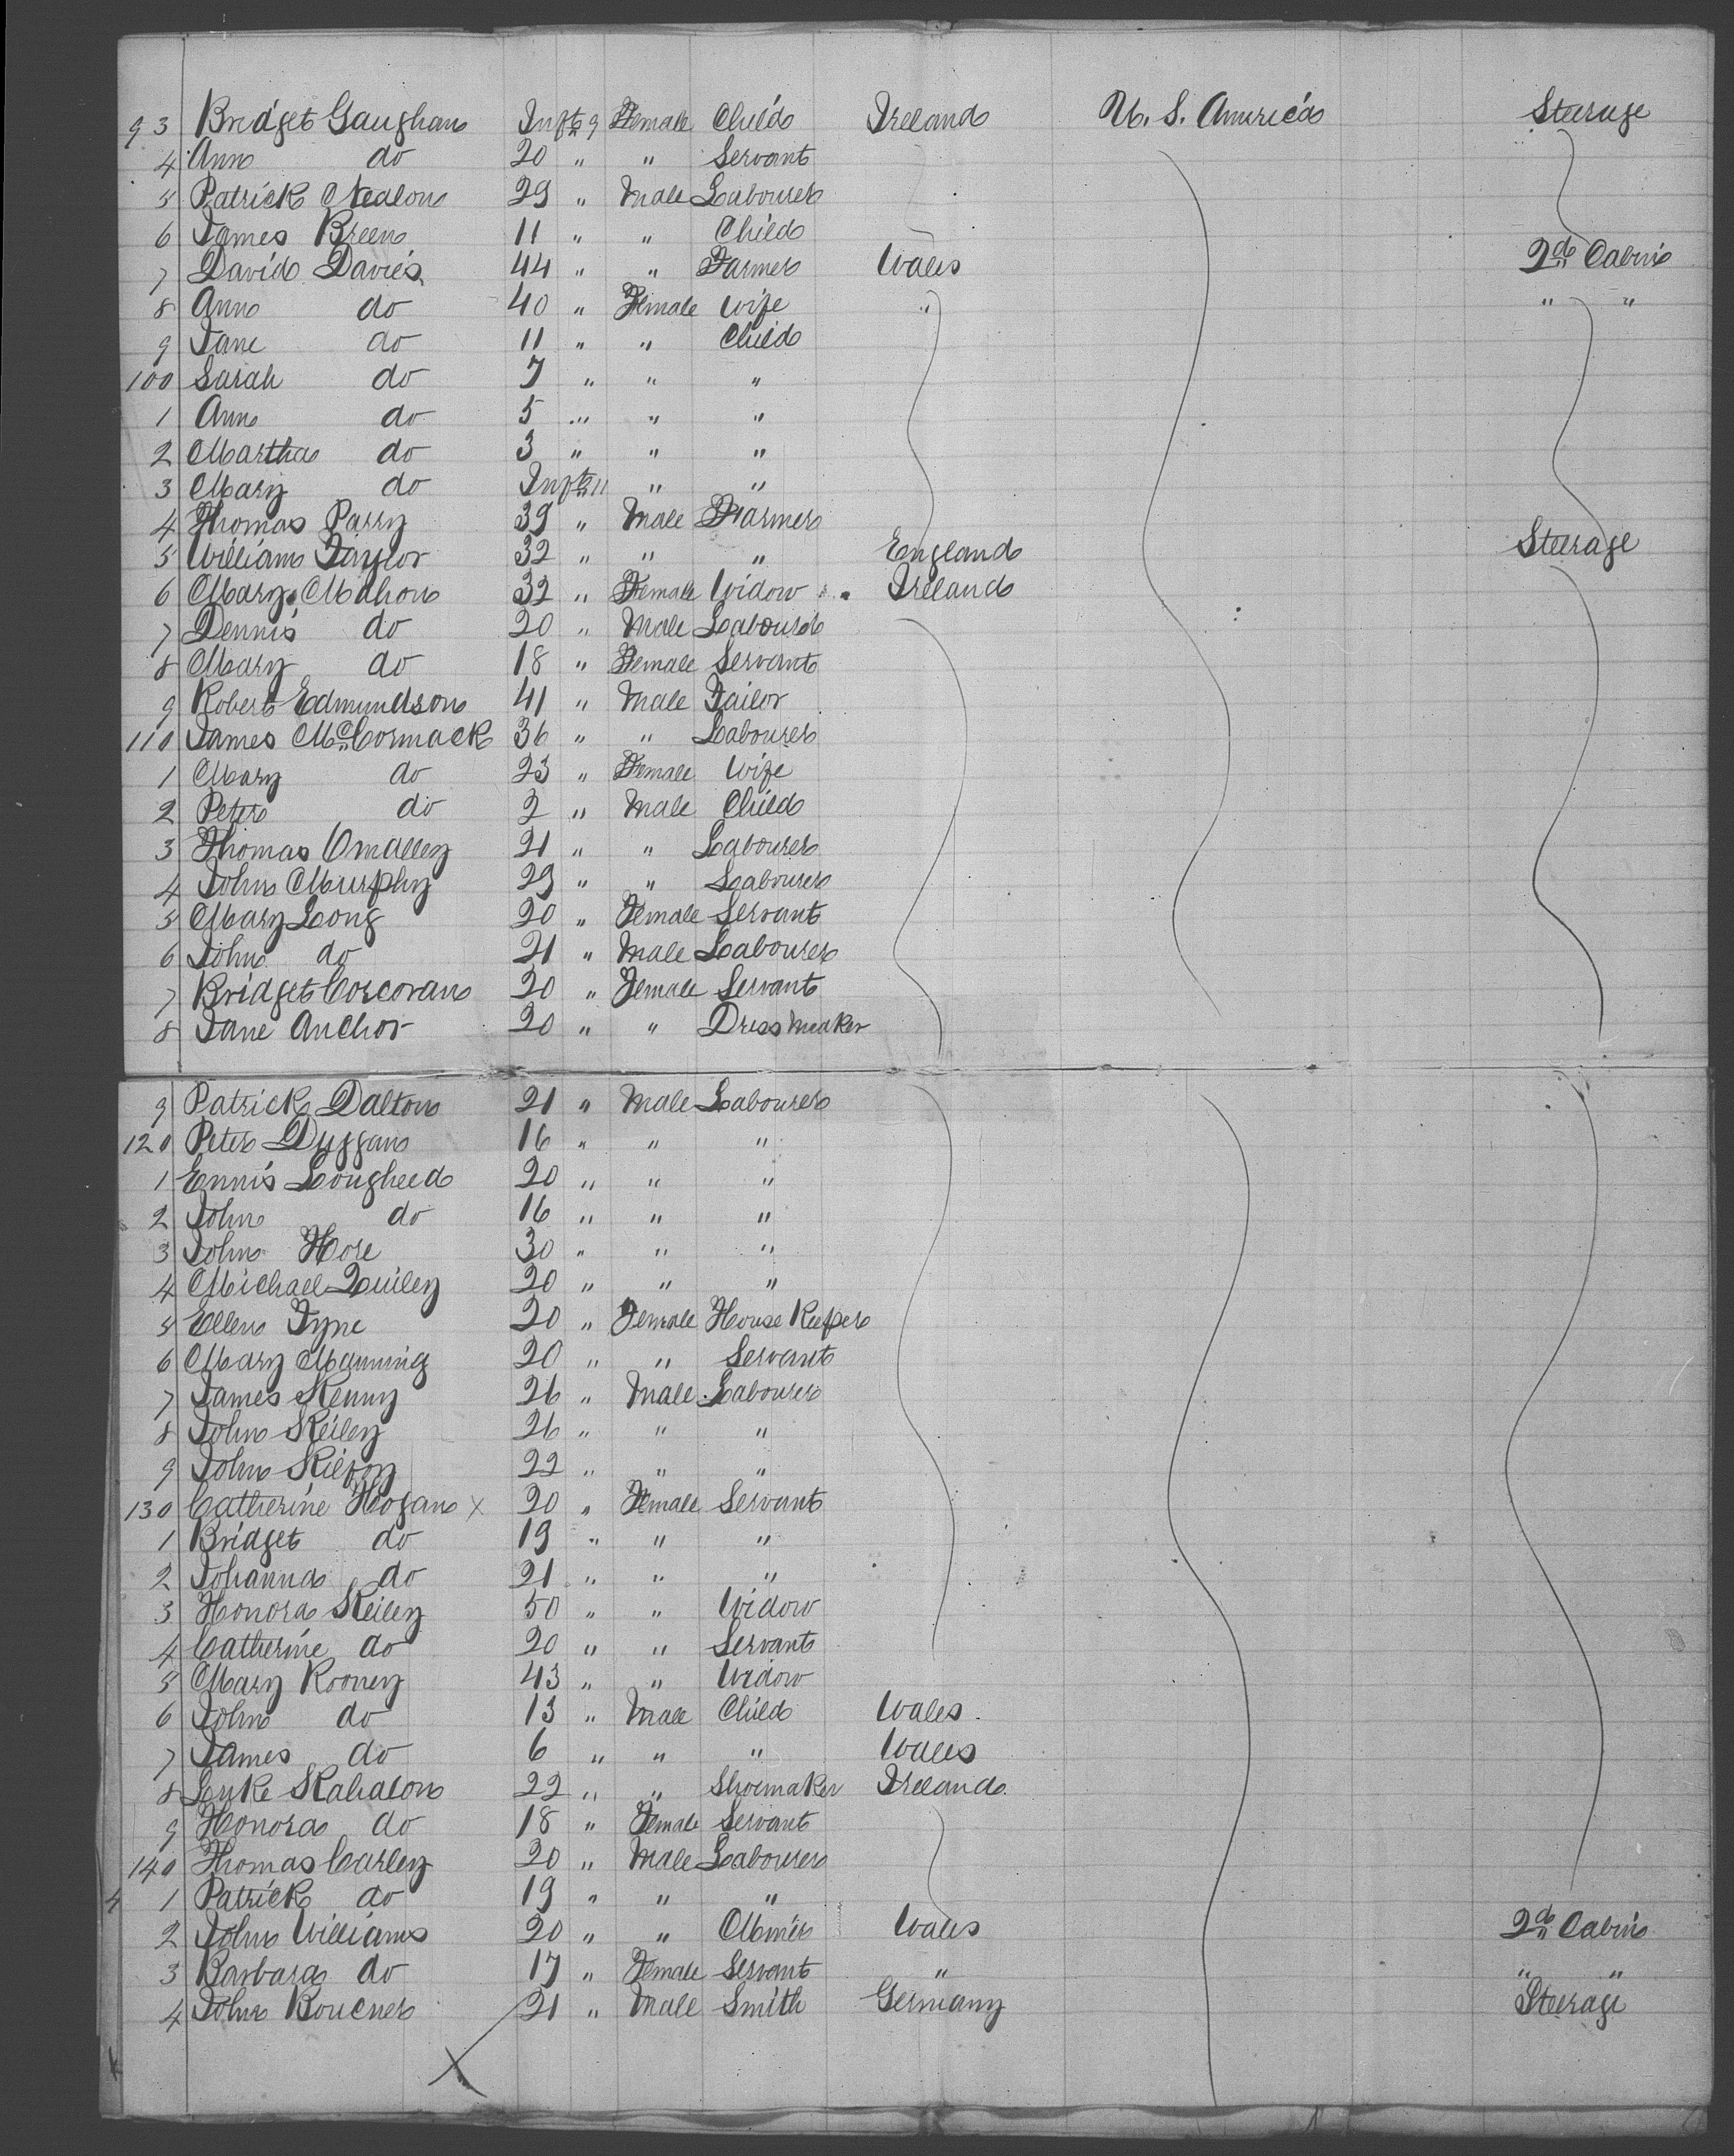 93 Bridget Gaughan Inft 9 Female Child Ireland U. S. America Steerage
4 Ann do 20 " " Servant
5 Patrick Nealon 29 " Male Labourer
6 James Breen 11 " " Child
7 David Davies 44 " " Farmer Wales 2d Cabin
8 Ann do 40 " Female Wife " " "
9 Jane do 11 " " Child
100 Sarah do 7 " " "
1 Ann do 5 " " "
2 Martha do 3 " " "
3 Mary do Inft 11 " "
4 Thomas Parry 39 " Male Farmer
5 William Taylor 32 " " " England Steerage
6 Mary Mahon 32 " Female Widow Ireland
7 Dennis do 20 " Male Labourer
8 Mary do 18 " Female Servant
9 Robert Edmundson 41 " Male Tailor
110 James McCormack 36 " " Labourer
1 Mary do 23 " Female Wife
2 Peter do 2 " Male Child
3 Thomas Omalley 21 " " Labourer
4 John Murphy 29 " " Labourer
5 Mary Long 20 " Female Servant
6 John do 21 " Male Labourer
7 Bridget Corcoran 20 " Female Servant
8 Jane Anchor 20 " " Dress Maker
9 Patrick Dalton 21 " Male Labourer
120 Peter Duggan 16 " " "
1 Ennis Lougheed 20 " " "
2 John do 16 " " "
3 John Hore 30 " " "
4 Michael 20 " " "
5 Ellen Tyne 20 " Female House Keeper
6 Mary Manning 20 " " Servant
7 James Kenny 26 " Male Labourer
8 John Keiley 26 " " "
9 John 22 " " "
130 Catherine Hogan x 20 " Female Servant
1 Bridget do 19 " " "
2 Johanna do 21 " " "
3 Honora Keiley 50 " " Widow
4 Catherine do 20 " " Servant
5 Mary Rooney 43 " " Widow
6 John do 13 " Male Child Wales
7 James do 6 " " " Wales
8 Luke 22 " " Shoemaker Ireland
9 Honora do 18 " Female Servant
140 Thomas Carley 20 " Male Labourer
1 Patrick do 19 " " "
2 John Williams 20 " " Miner Wales 2d Cabin
3 Barbara do 17 " Female Servant " " "
4 John 21 " Male Smith Germany Steerage